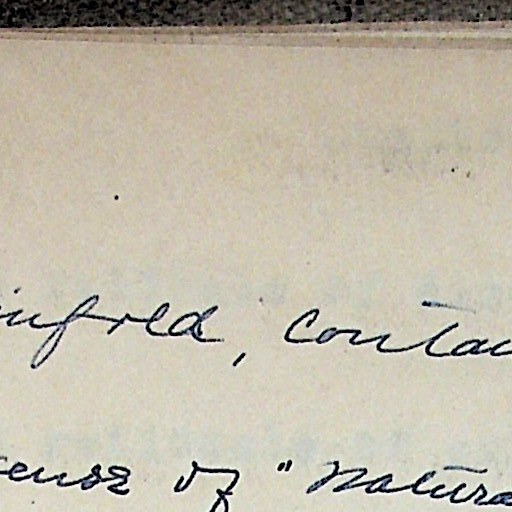 infred, contai
sense of "natura